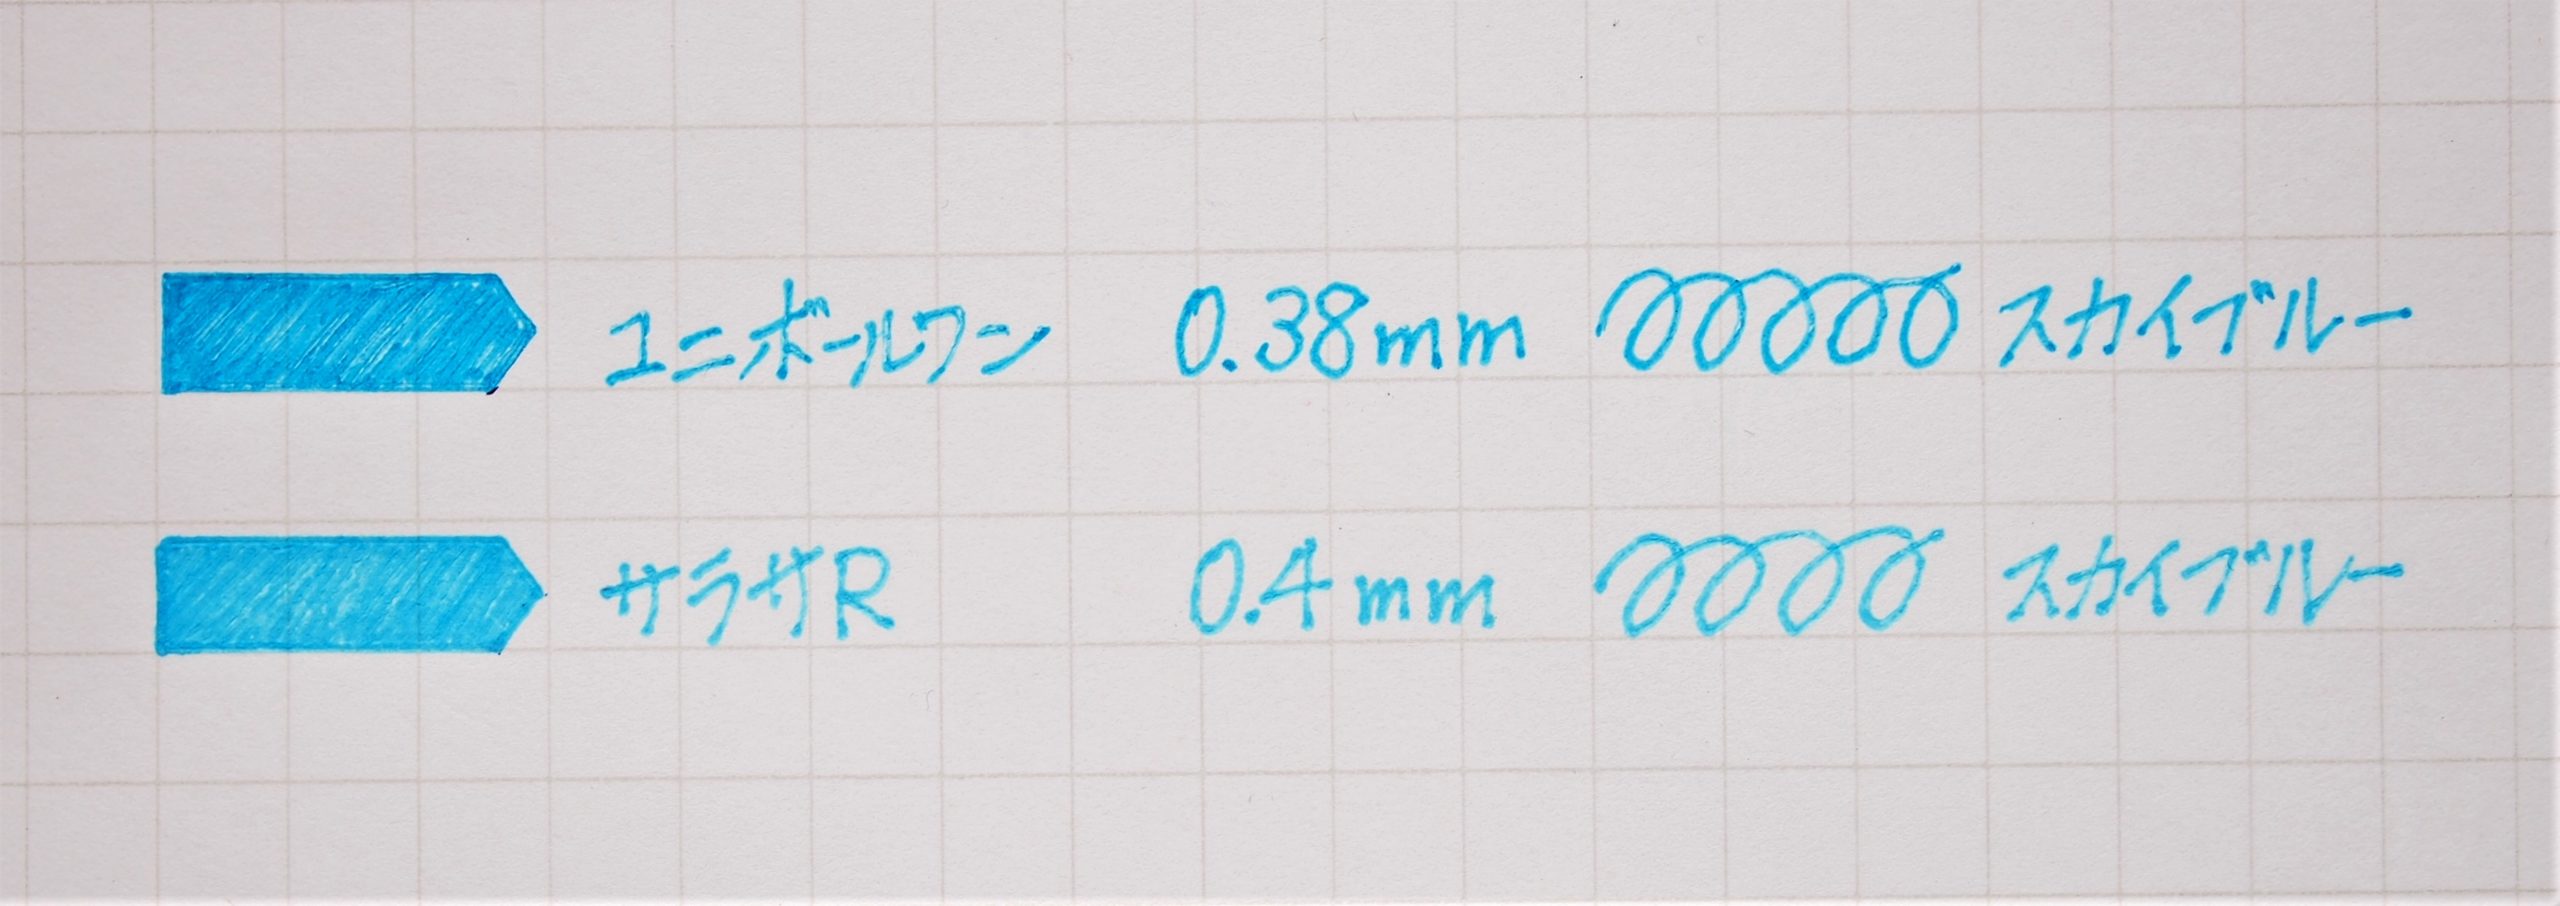 ユニボールワン 0.38mm スカイブルー
サラサR 0.4mm スカイブルー